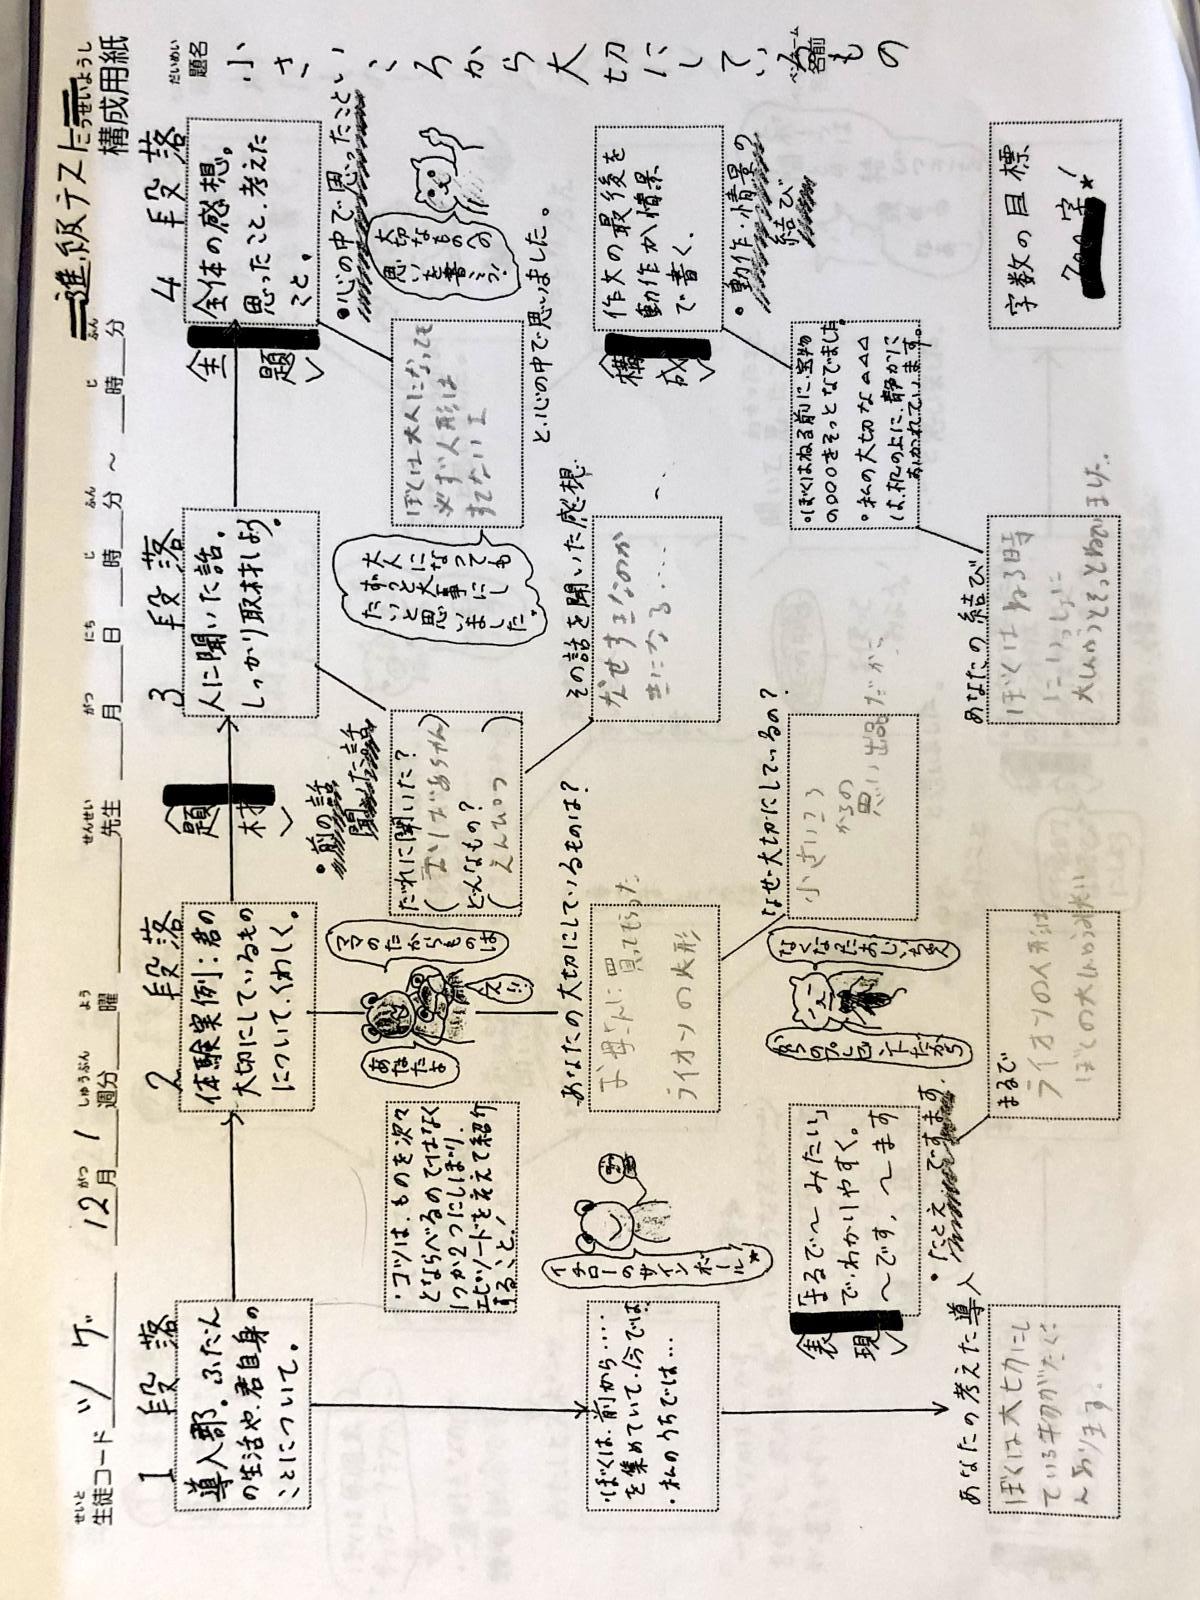 進級テスト
こうせいようし
構成用紙
せいと
生徒コード ツ ゲ
12月 1週分
がつ
しゅうぶん
よう
曜
せんせい
先生
がつ にち じ ふん じ ふん
月 日 時 分 ～ 時 分
だいめい
題名
小さいころから大切にしているもの
1段落
導入部。ふだん
の生活や、君自身の
ことについて。
・ぼくは、前から……
を集めていて、今では
・私のうちでは…
あなたの考えた導入
ぼくは大切にし
ている
あります。
2段落
体験実例：君の
大切にしているもの
について、くわしく。
・コツは、ものを次々
とならべるのではなく
1つか2つにしぼり、
エピソードを入れて紹介
すること！
ママのたからものは
あなたよ
え!!
イチローのサイン
ボール！
あなたの大切にしているものは？
お母さんに買ってもらった
ライオンの人形
なぜ大切にしているの？
小さいころ
からの
思い出品だから
なくなったおじいちゃん
からのプレゼントだから
〈表現〉
「まるで〜みたい」
で、わかりやすく。
〜です、〜ます
・「たとえ
まるで
ライオンの人形は
ぼくの
〈題材〉
3段落
人に聞いた話。
しっかり取材しよう。
・前の話
聞いた話
だれに聞いた？
どんなもの？
えんぴつ
その話を聞いた感想
なぜすきなのか
きになる……
大人になっても
ずっと大事にし
たいと思
いました。
〈主題〉
4段落
全体の感想。
思ったこと、考えた
こと。
・心の中で思ったこと
大切なものへの
思いを書こう！
ぼくは大人になっても
必ず人形は
すてない
と、心の中で思いました。
〈構成〉
作文の最後を
動作か情景
で書く。
・動作・情景の
結び
・ぼくはねる前に、宝物
の○○○をそっとなでました。
・私の大切な△△△
は、机の上に、静かに
おかれています。
あなたの結び
ぼくはねる時
にいっしょに
字数の目標
字！